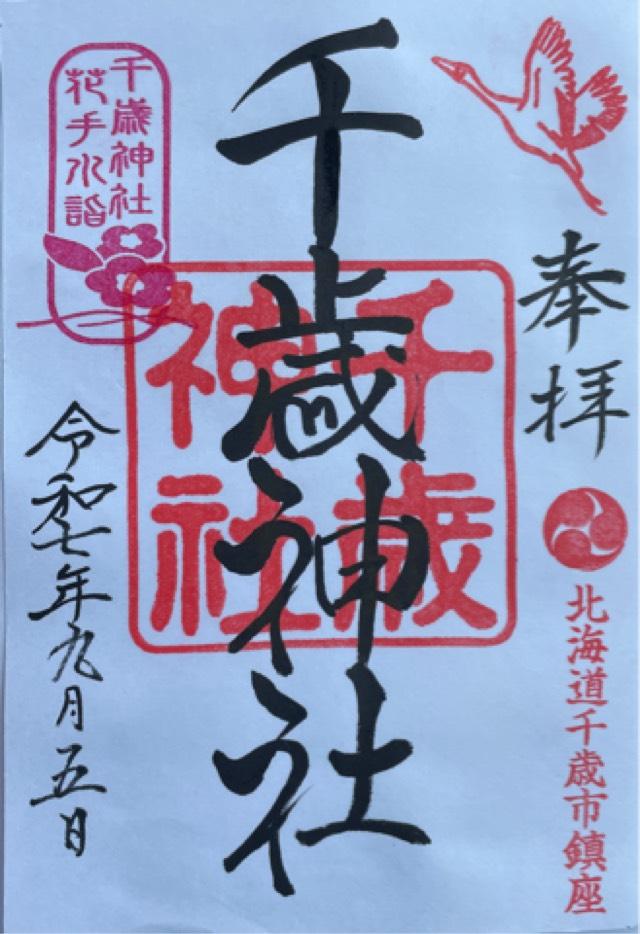 奉拝
北海道千歳市鎮座
千歳神社
千歳
神社
千歳神社
花手水詣
令和七年九月五日